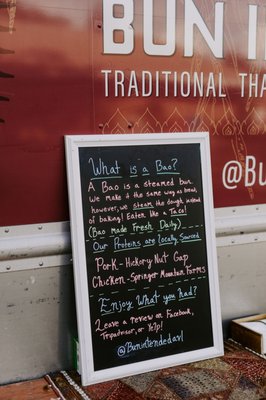 BUN IN
TRADITIONAL THA
@Bu
What is a Bao?
A Bao is a steamed bun.
We make it the same way as bread,
however, we steam the dough instead
of baking! Eaten like a Taco!
(Bao made Fresh Daily)
Our Proteins are locally Sourced
Pork - Hickory Nut Gap
Chicken - Springer Mountain Farms
Enjoy What you had?
Leave a review on Facebook,
Tripadvisor, or Yelp!
@Bunintendedavl